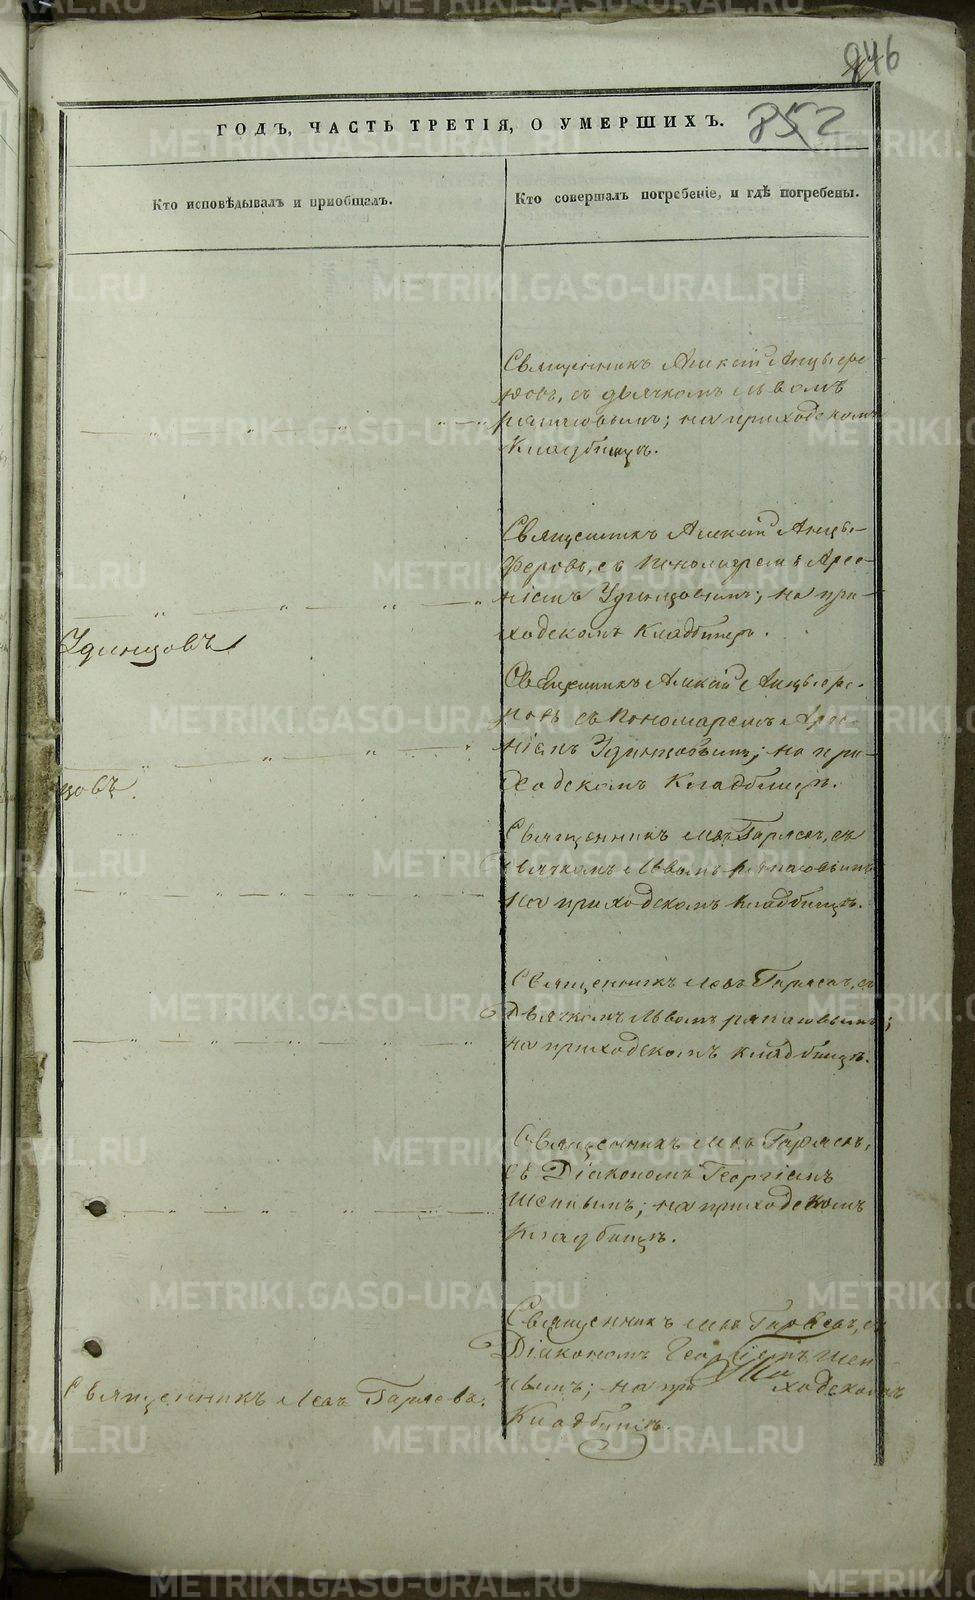 846
852
ГОДЪ, ЧАСТЬ ТРЕТІЯ, О УМЕРШИХЪ.
Кто исповѣдывалъ и пріобщалъ.
Кто совершалъ погребеніе, и гдѣ погребены.
Священникъ Алексій Анцыфе
ровъ, съ дьячкомъ Львомъ
на приходскомъ
Кладбищѣ.
Священникъ Алексій Анцы-
феровъ, съ Пономаремъ Арсе-
ніемъ Удинцовымъ; на при-
ходскомъ Кладбищѣ.
Удинцовъ
Священникъ Алексій Анцыфе-
ровъ съ Пономаремъ Арсе-
ніемъ Удинцовымъ; на при-
ходскомъ Кладбищѣ.
цовъ.
Священникъ Левъ Гаряевъ, съ
Дьячкомъ Львомъ
на приходскомъ Кладбищѣ.
Священникъ Левъ Гаряевъ, съ
Дьячкомъ Львомъ
на приходскомъ кладбищѣ.
Священникъ Левъ Гаряевъ,
съ Діакономъ Георгіемъ
на приходскомъ
Кладбищѣ.
Священникъ Левъ Гаряевъ, съ
Діакономъ Георгіемъ
на при ходскомъ
Священникъ Левъ Гаряевъ.
Кладбищѣ.
METRIKI.GASO-URAL.RU